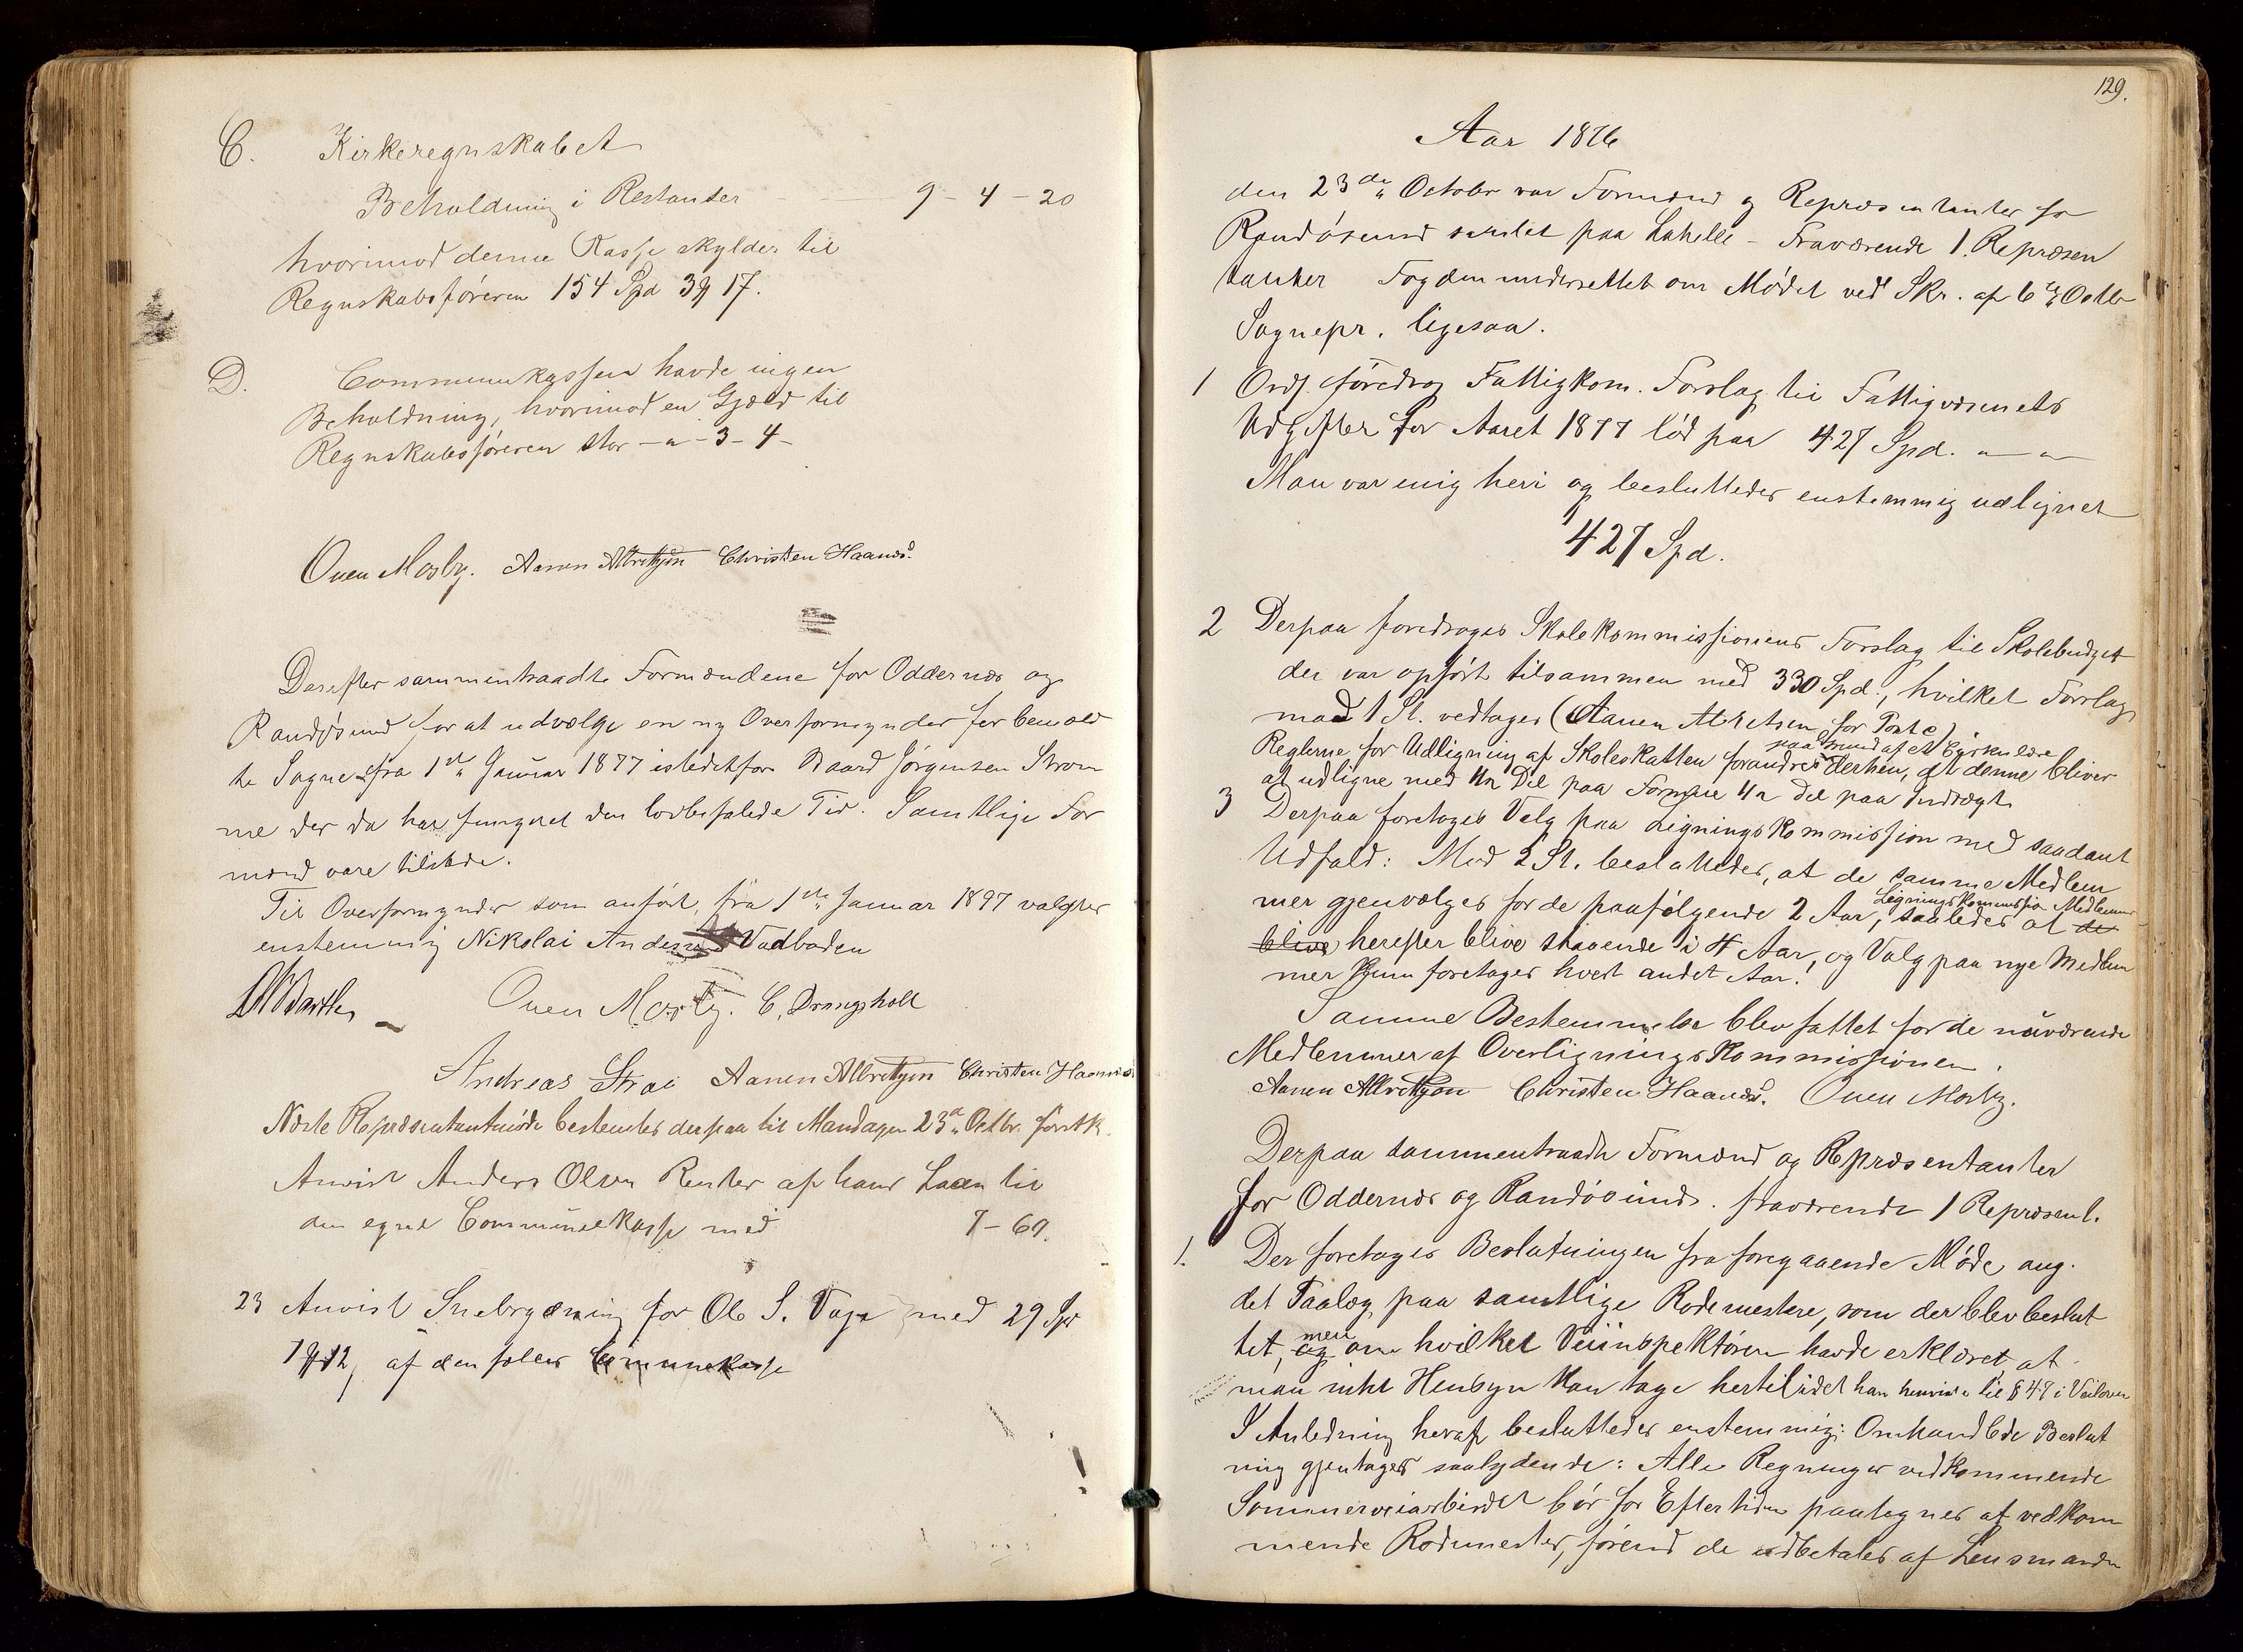 C. Kirkeregnskabet
Beholdning i Restantser - - 9 - 4 - 20
hvorimod denne Kasse skylder til
Regnskabsføreren 154 Spd 3 17.
D. Communekassen havde ingen
Beholdning, hvorimod en Gjæld til
Regnskabsføreren stor - " - 3 - 4 -
Ouen Mosby. Aanen Albretsen Christen Haanæs.
Derefter sammentraadte Formændene for Oddernæs og
Randøsund for at udvælge en ny Overformynder for bemeld
te Sogne fra 1ste Januar 1877 istedetfor Baard Jørgensen Strøm
me der da har fungeret den lovbefalede Tid. Samtlige For
mænd vare tilstede.
Til Overformynder som anført, fra 1ste Januar 1877 valgtes
enstemmig Nikolai Andersen Vadboden
Ouen Mosby. C. Drangsholt
Andreas Strai Aanen Albretsen Christen Haanæs
Næste Repræsentantmøde bestemtes derpaa til Mandagen 23de Octbr. førstk.
Anvist Anders Olsen Renter af hans Laan til
den egne Communekasse med 7 - 69.
23 Anvist Snebrydning for Ole S. Vage med 29 Spd
12, af den fælles Communekasse
129.
Aar 1876
den 23de October var Formænd og Repræsentanter for
Randøsund samlet paa Lahelle - Fraværende 1. Repræsen
tanter Fogden underrettet om Mødet ved Skr. af 6te Octbr
Sognepr. ligesaa.
1 Ordf. foredrog Fattigkom. Forslag til Fattigvæsenets
Udgifter for Aaret 1877 lød paa 427 Spd. " "
Man var enig heri og besluttedes enstemmig udlignet
427 Spd.
2 Derpaa foredroges Skolekommissionens Forslag til Skolebudget
der var opført tilsammen med 330 Spd., hvilket Forslag
mod 1 St. vedtoges (Aanen Albretsen for Porto)
paa Grund af et Cirkulære
Reglerne for Udligning af Skoleskatten forandres derhen, at denne bliver
at udligne med 1/2 Del paa Formue 1/2 del paa Indtægt
3 Derpaa foretoges Valg paa Ligningskommission med saadant
Udfald: Mod 2 St. besluttedes, at de samme Medlem
mer gjenvælges for de paafølgende 2 Aar, saaledes at de
Ligningskommission Medlemmer
blive herefter blive staaende i 4 Aar, og Valg paa nye Medlem
mer kun foretages hvert andet Aar!
Samme Bestemmelse blev fattet for de nuværende
Medlemmer af Overligningskommissionen.
Aanen Albretsen Christen Haanæs. Ouen Mosby.
Derpaa sammentraadte Formænd og Repræsentanter
for Oddernæs og Randøsund. fraværende 1 Repræsent.
1. Der foretoges Beslutningen fra foregaaende Møde ang.
det Paalæg paa samtlige Rodemestere, som der blev beslut
tet, og men om hvilket Veiinspektøren havde erklæret, at
man intet Hensyn kan tage hertil idet han henviste til § 47 i Veiloven
I Anledning heraf besluttedes enstemmig: Omhandlede Beslut
ning gjentages saalydende: Alle Regninger vedkommende
Sommerveiarbeidet bør for Eftertiden paategnes af vedkom
mende Rodemester, førend de udbetales af Lensmanden